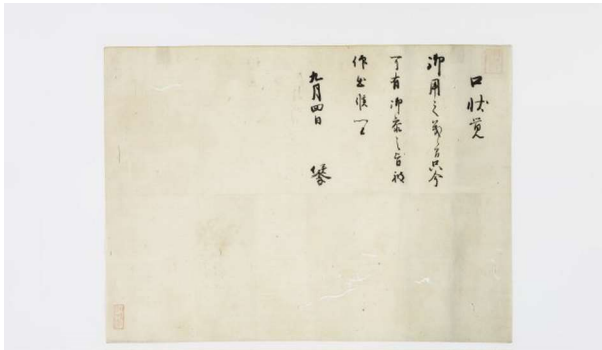 口状覚
御用之義只今
可有御参之旨被
仰出候以上
九月四日